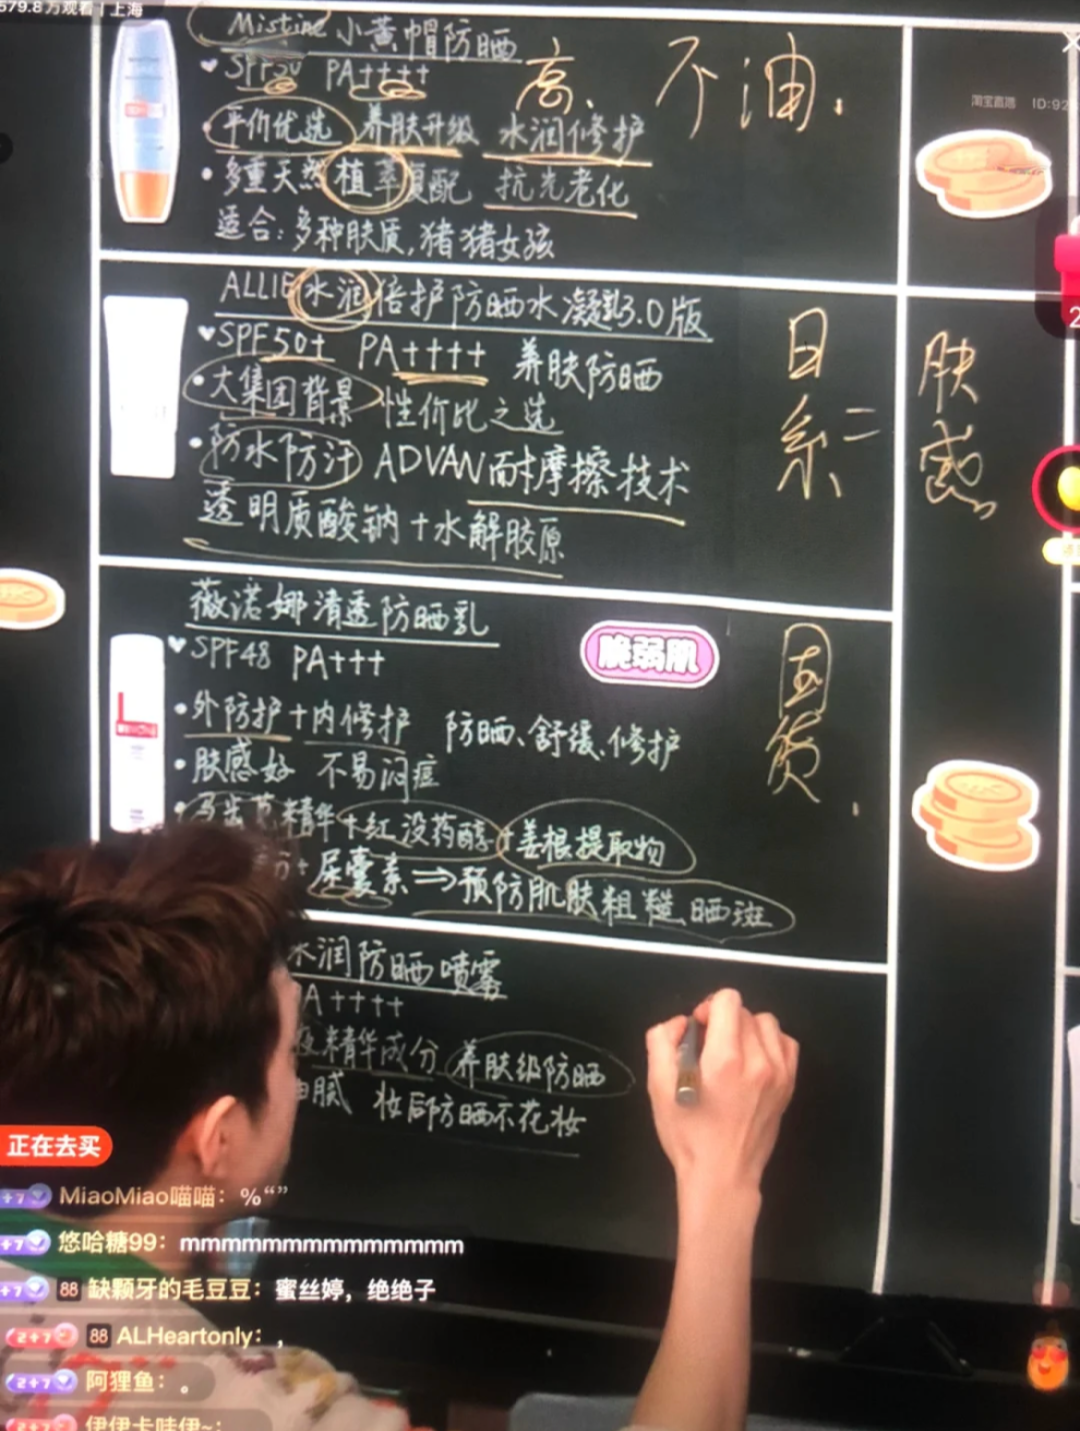 579.8万观看 | 上海
Mistine 小黄帽防晒
SPF50 PA++++
高、不油.
淘宝直播 ID:92
·平价优选 养肤升级 水润修护
·多重天然植萃复配 抗光老化
适合:多种肤质,猪猪女孩
ALLIE水润倍护防晒水凝乳3.0版
SPF50+ PA++++ 养肤防晒
·大集团背景 性价比之选
·防水防汗 ADVAN耐摩擦技术
透明质酸钠+水解胶原
日系二
肤感
2
薇诺娜清透防晒乳
SPF48 PA+++
脆弱肌
·外防护+内修护 防晒、舒缓、修护
·肤感好 不易闷痘
·马齿苋精华+红没药醇+姜根提取物
+尿囊素⇒预防肌肤粗糙、晒斑
国货.
水润防晒喷雾
A++++
精华成分 养肤级防晒
油腻 妆后防晒不花妆
正在去买
+7 MiaoMiao喵喵：%“”
+7 悠哈糖99：mmmmmmmmmmmmmm
+7 88 缺颗牙的毛豆豆：蜜丝婷，绝绝子
2+7 88 ALHeartonly：，
2+7 阿狸鱼：。
2+7 伊伊卡哇伊~：